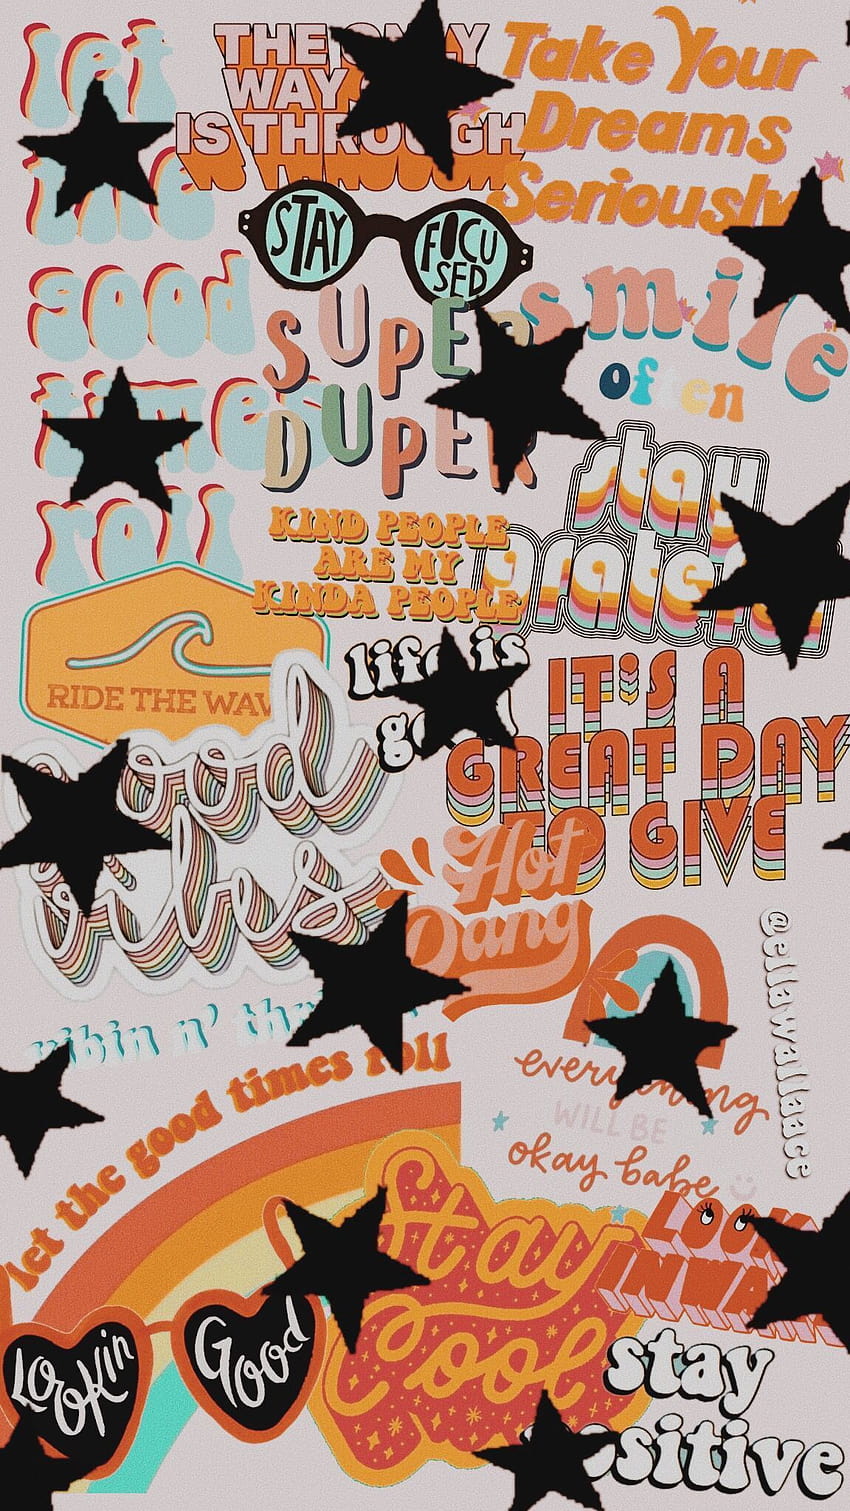 let
the
good
times
roll
THE ONLY
WAY
IS THROUGH
Take Your
Dreams
Seriously
STAY
FOCU
SED
SUPER
DUPER
smile
often
KIND PEOPLE
ARE MY
KINDA PEOPLE
stay
grateful
RIDE THE WAV
life is
good
IT'S A
GREAT DAY
TO GIVE
good
vibes
Hot
Dang
@ellawallaace
vibin n'
let the good times roll
everything
WILL BE
okay babe
Stay
Cool
LOOK
INWA
Lookin
Good
stay
positive